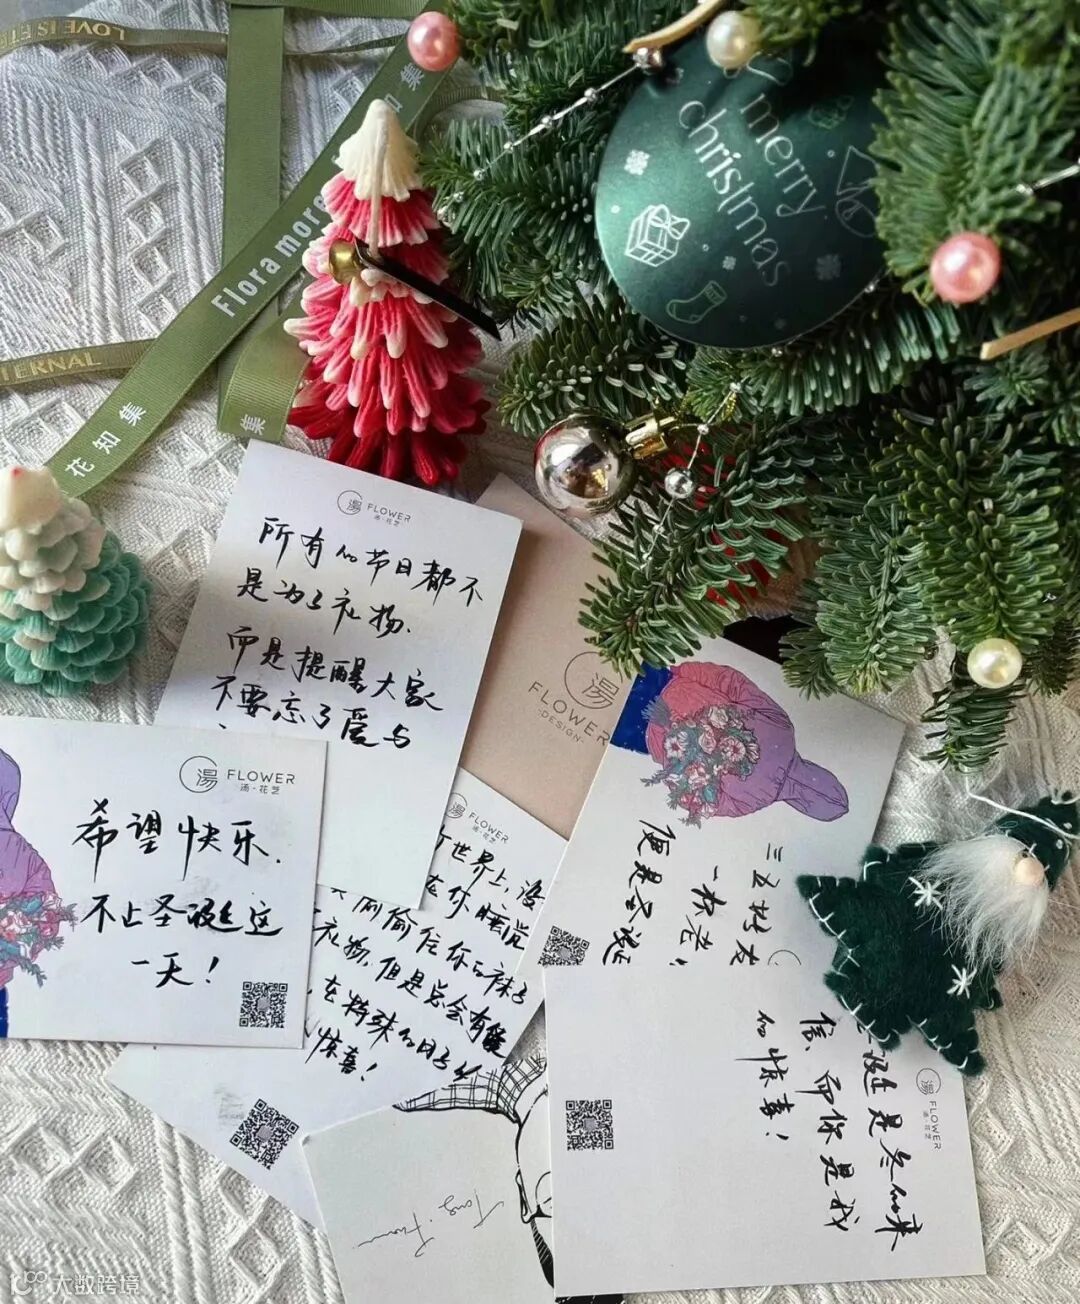 LOVE IS ET
Flora more
花知集
知集
集
TERNAL
花 知 集
merry
christmas
湯 FLOWER
汤·花艺
所有的节日都不
是为了礼物、
而是提醒大家
不要忘了爱与
湯
FLOWER
-DESIGN-
湯 FLOWER
汤·花艺
希望快乐、
不止圣诞这
一天！
湯 FLOWER
汤·花艺
世界上，没
在你睡觉
偷偷往你的床了
礼物，但是总会有
在特殊的日子
惊喜！
三五好友
一杯老
便是圣诞
湯 FLOWER
汤·花艺
诞是冬的来
信，而你是我
的惊喜！
大数跨境